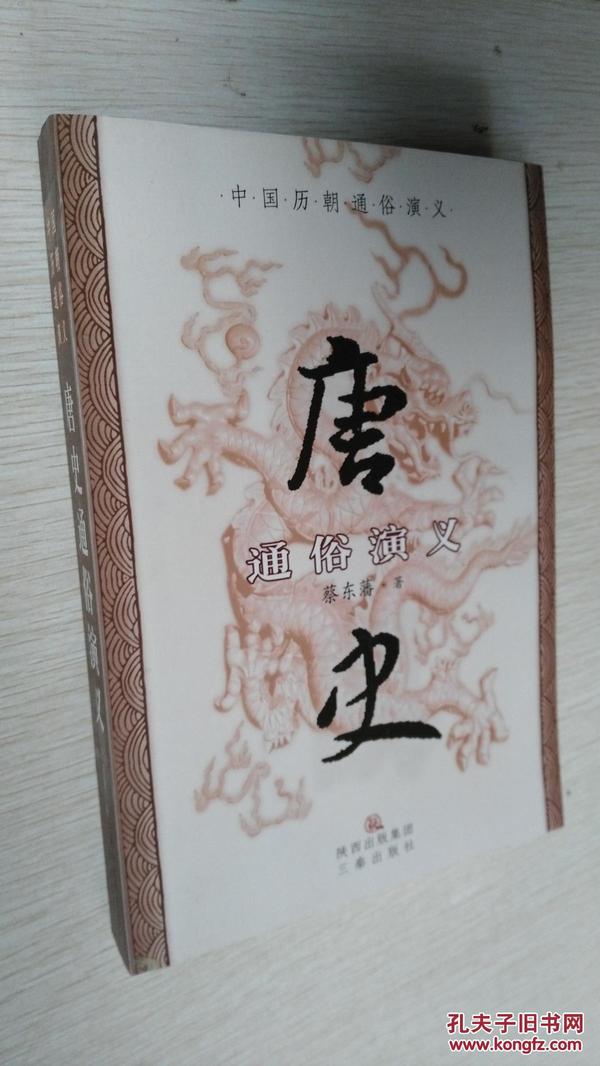 ·中·国·历·朝·通·俗·演·义·
唐
通俗演义
蔡东藩·著
史
陕西出版集团
三秦出版社
唐史通俗演义
孔夫子旧书网
www.kongfz.com